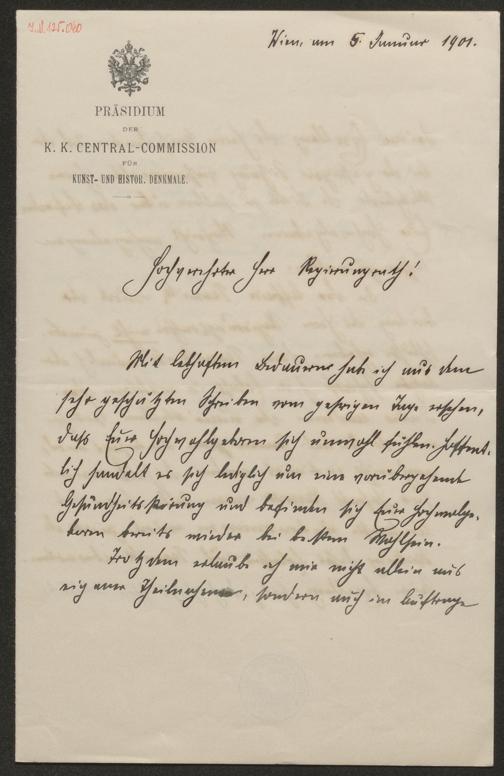 J.N. 125.060
Wien, am 5. Januar 1901.
PRÄSIDIUM
DER
K. K. CENTRAL-COMMISSION
FÜR
KUNST- UND HISTOR. DENKMALE.
Hochverehrter Herr Regierungsrath!
Mit lebhaftem Bedauern habe ich aus dem
sehr geschätzten Schreiben vom gestrigen Tage ersehen,
daß Euer Hochwohlgeboren sich unwohl fühlen. Hoffent-
lich handelt es sich lediglich um eine vorübergehende
Gesundheitsstörung und befinden sich Euer Hochwolge-
boren bereits wieder bei bestem Wohlsein.
Trotzdem erlaube ich mir nicht allein aus
eigener Theilnahme, sondern auch im Auftrage